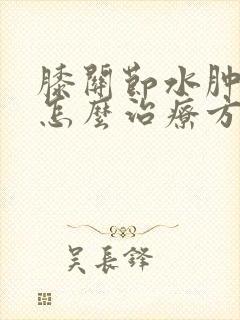 膝關節水肿
怎麽治療方
吴長鋒